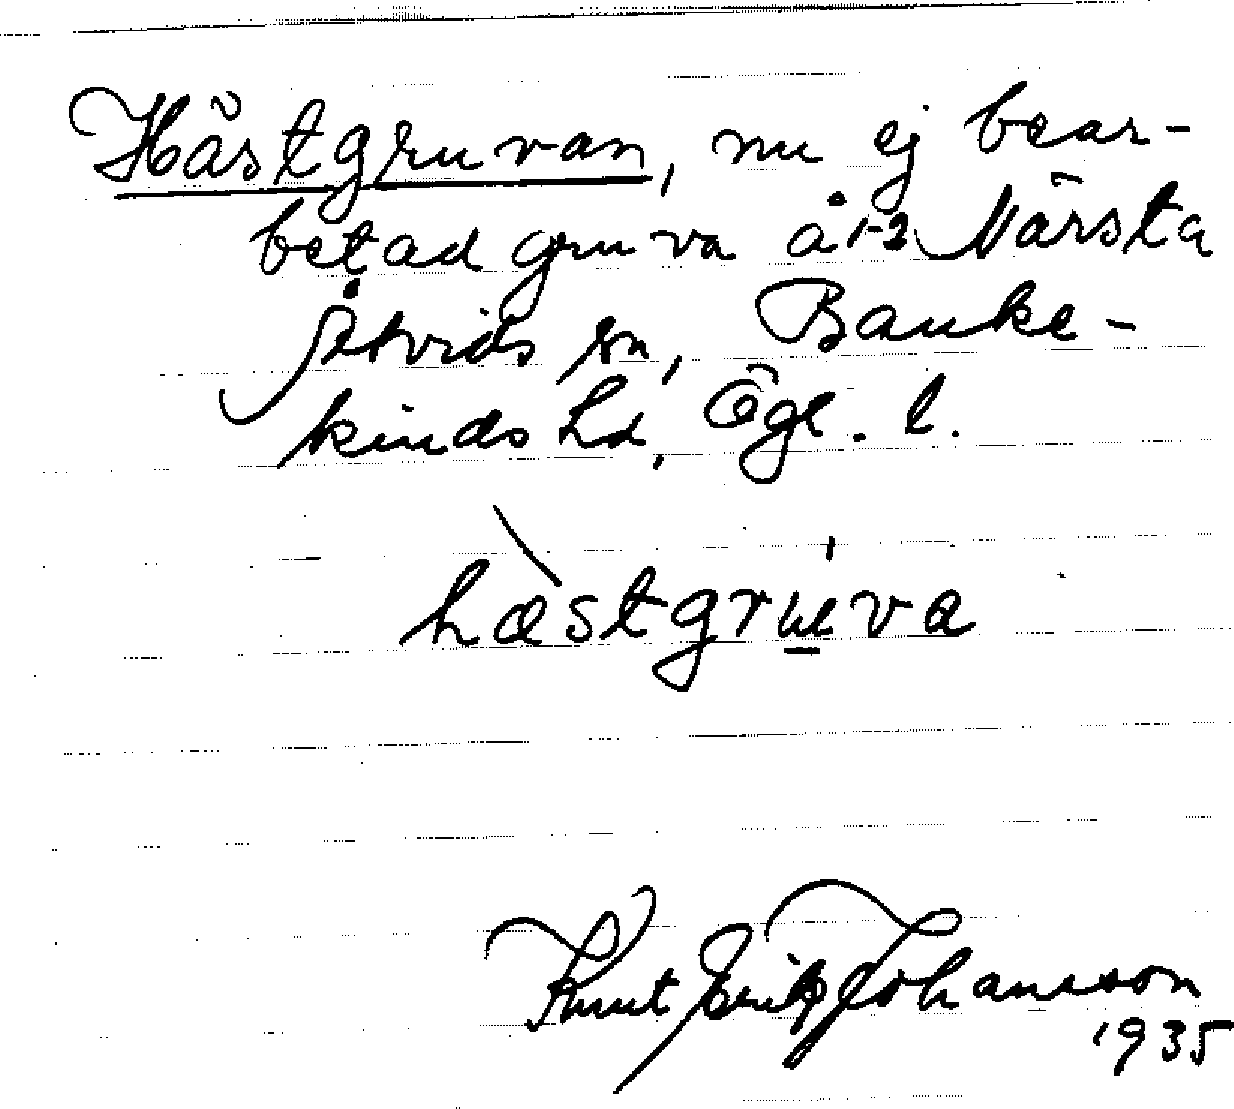 Hästgruvan, nu ej bear-
betad gruva å 1-2 Närsta
Åtvids sn, Banke-
kinds hd, Ögl. l.
hæstgruva
Knut Erik Johansson
1935